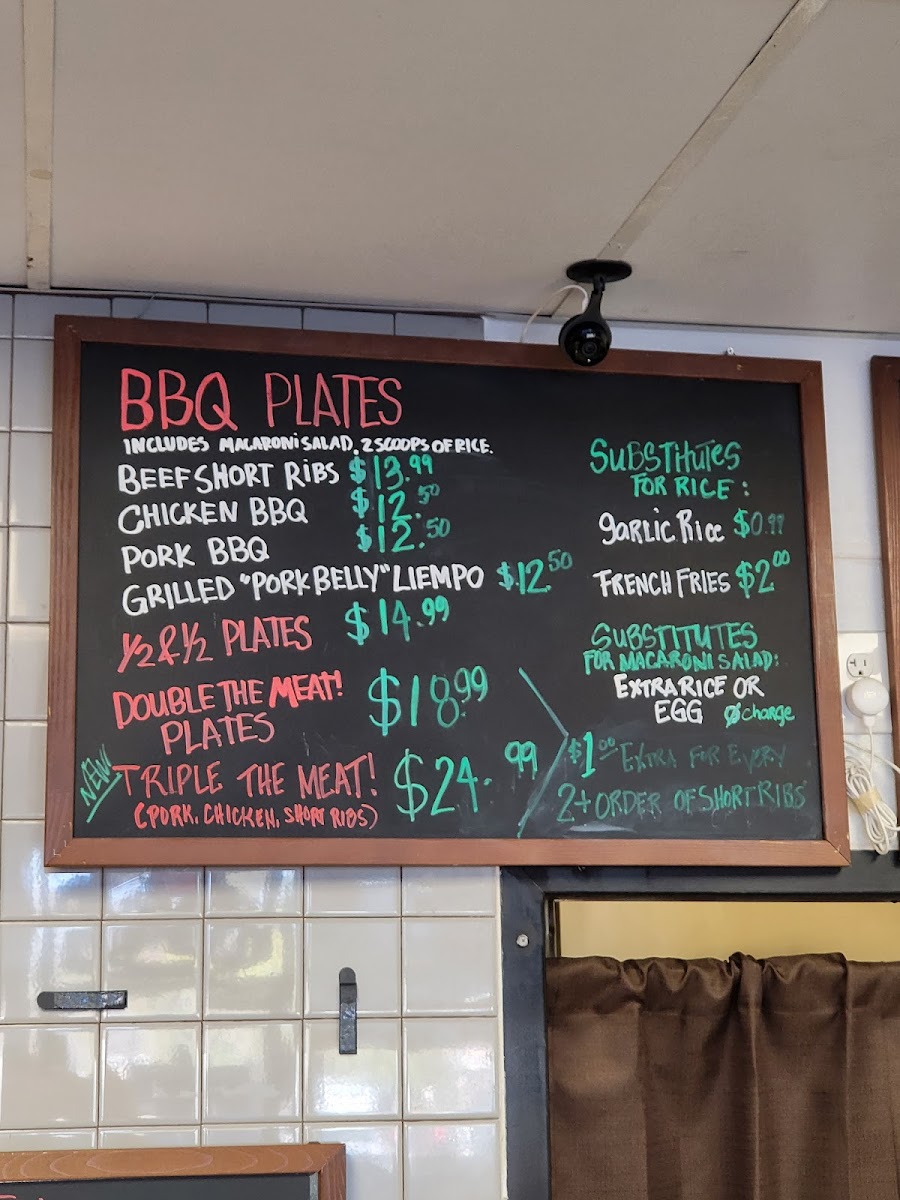 BBQ PLATES
INCLUDES MACARONI SALAD, 2 SCOOPS OF RICE.
BEEF SHORT RIBS $13.99
CHICKEN BBQ $12.50
PORK BBQ $12.50
GRILLED "PORK BELLY" LIEMPO $12.50
1/2 & 1/2 PLATES $14.99
DOUBLE THE MEAT! $18.99
PLATES
NEW TRIPLE THE MEAT! $24.99
(PORK, CHICKEN, SHORT RIBS)
SUBSTITUTES
FOR RICE:
garLic Rice $0.99
FRENCH FRIES $2.00
SUBSTITUTES
FOR MACARONI SALAD:
EXTRA RICE OR
EGG Ø charge
$1.00 EXTRA FOR EVERY
2+ ORDER OF SHORT RIBS